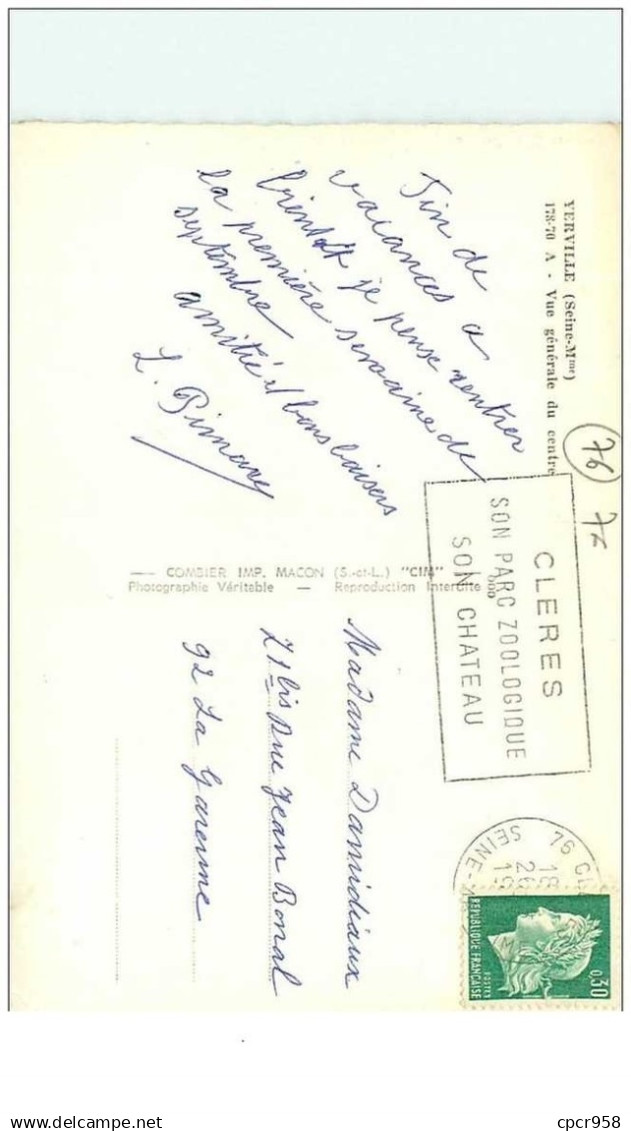 YERVILLE (Seine-Mme)
178-70 A - Vue générale du centre
76
76
Fin de
vacances a
bientôt je pense rentrer
la première semaine de
septembre
amitié et bons baisers
L.
COMBIER IMP. MACON (S.-et-L.) "CIM"
Photographie Véritable — Reproduction Interdite
CLERES
SON PARC ZOOLOGIQUE
SON CHATEAU
76
18
26
19
SEINE-
0,30
REPUBLIQUE FRANÇAISE
POSTES
Madame Damidiaux
21 bis rue Jean Bonal
92 La Garenne
delcampe.net
cpcr958